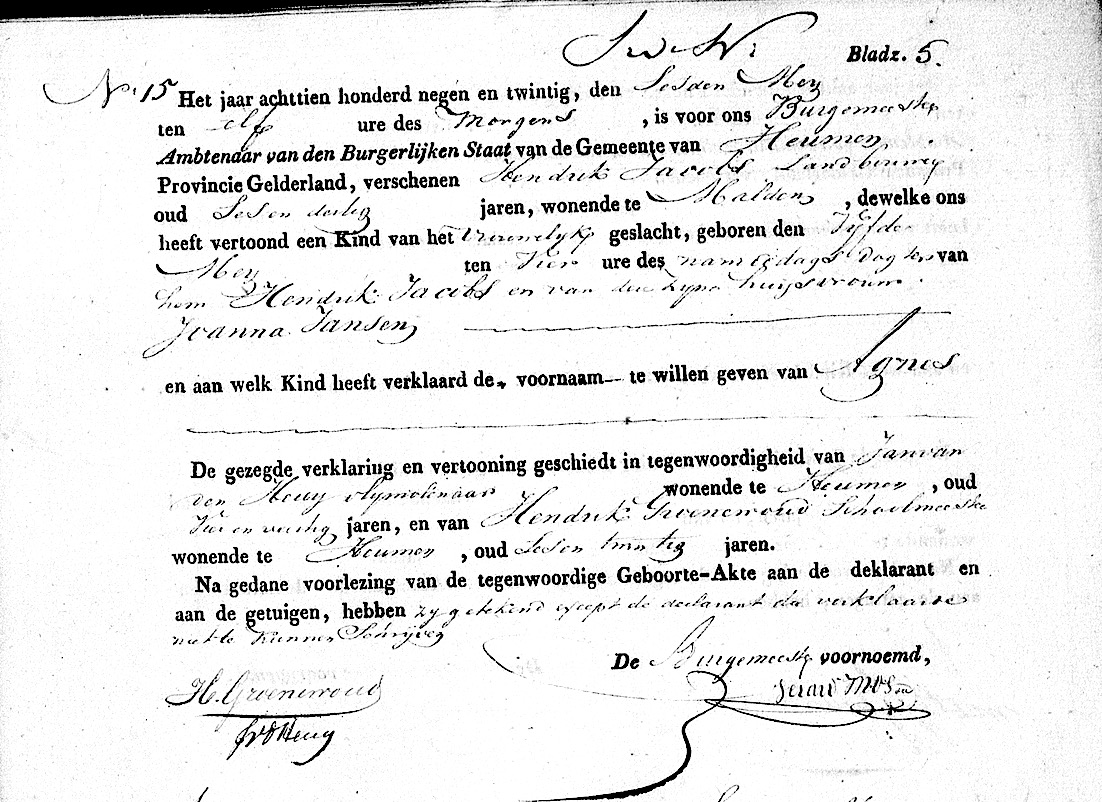 Bladz. 5.
N. 15 Het jaar achttien honderd negen en twintig, den Sesden Mey
ten elf ure des Morgens , is voor ons Burgemeester
Ambtenaar van den Burgerlijken Staat van de Gemeente van Heumen
Provincie Gelderland, verschenen Hendrik Jacobs Landbouwer
oud Ses en dertig jaren, wonende te Malden , dewelke ons
heeft vertoond een Kind van het vrouwelyk geslacht, geboren den Vyfde
Mey ten Vier ure des namiddags van
hem Hendrik Jacobs en van zyne huysvrouw
Joanna Jansen
en aan welk Kind heeft verklaard de voornaam te willen geven van Agnes
De gezegde verklaring en vertooning geschiedt in tegenwoordigheid van Jan van
den Heuy Olymolenaar wonende te Heumen , oud
Vier en veertig jaren, en van Hendrik Groenewoud Schoolmeester
wonende te Heumen , oud Ses en twintig jaren.
Na gedane voorlezing van de tegenwoordige Geboorte-Akte aan de deklarant en
aan de getuigen, hebben zy getekend except de declarant die verklaarde
niet te kunnen Schryven
De Burgemeester voornoemd,
H. Groenewoud
Gerard